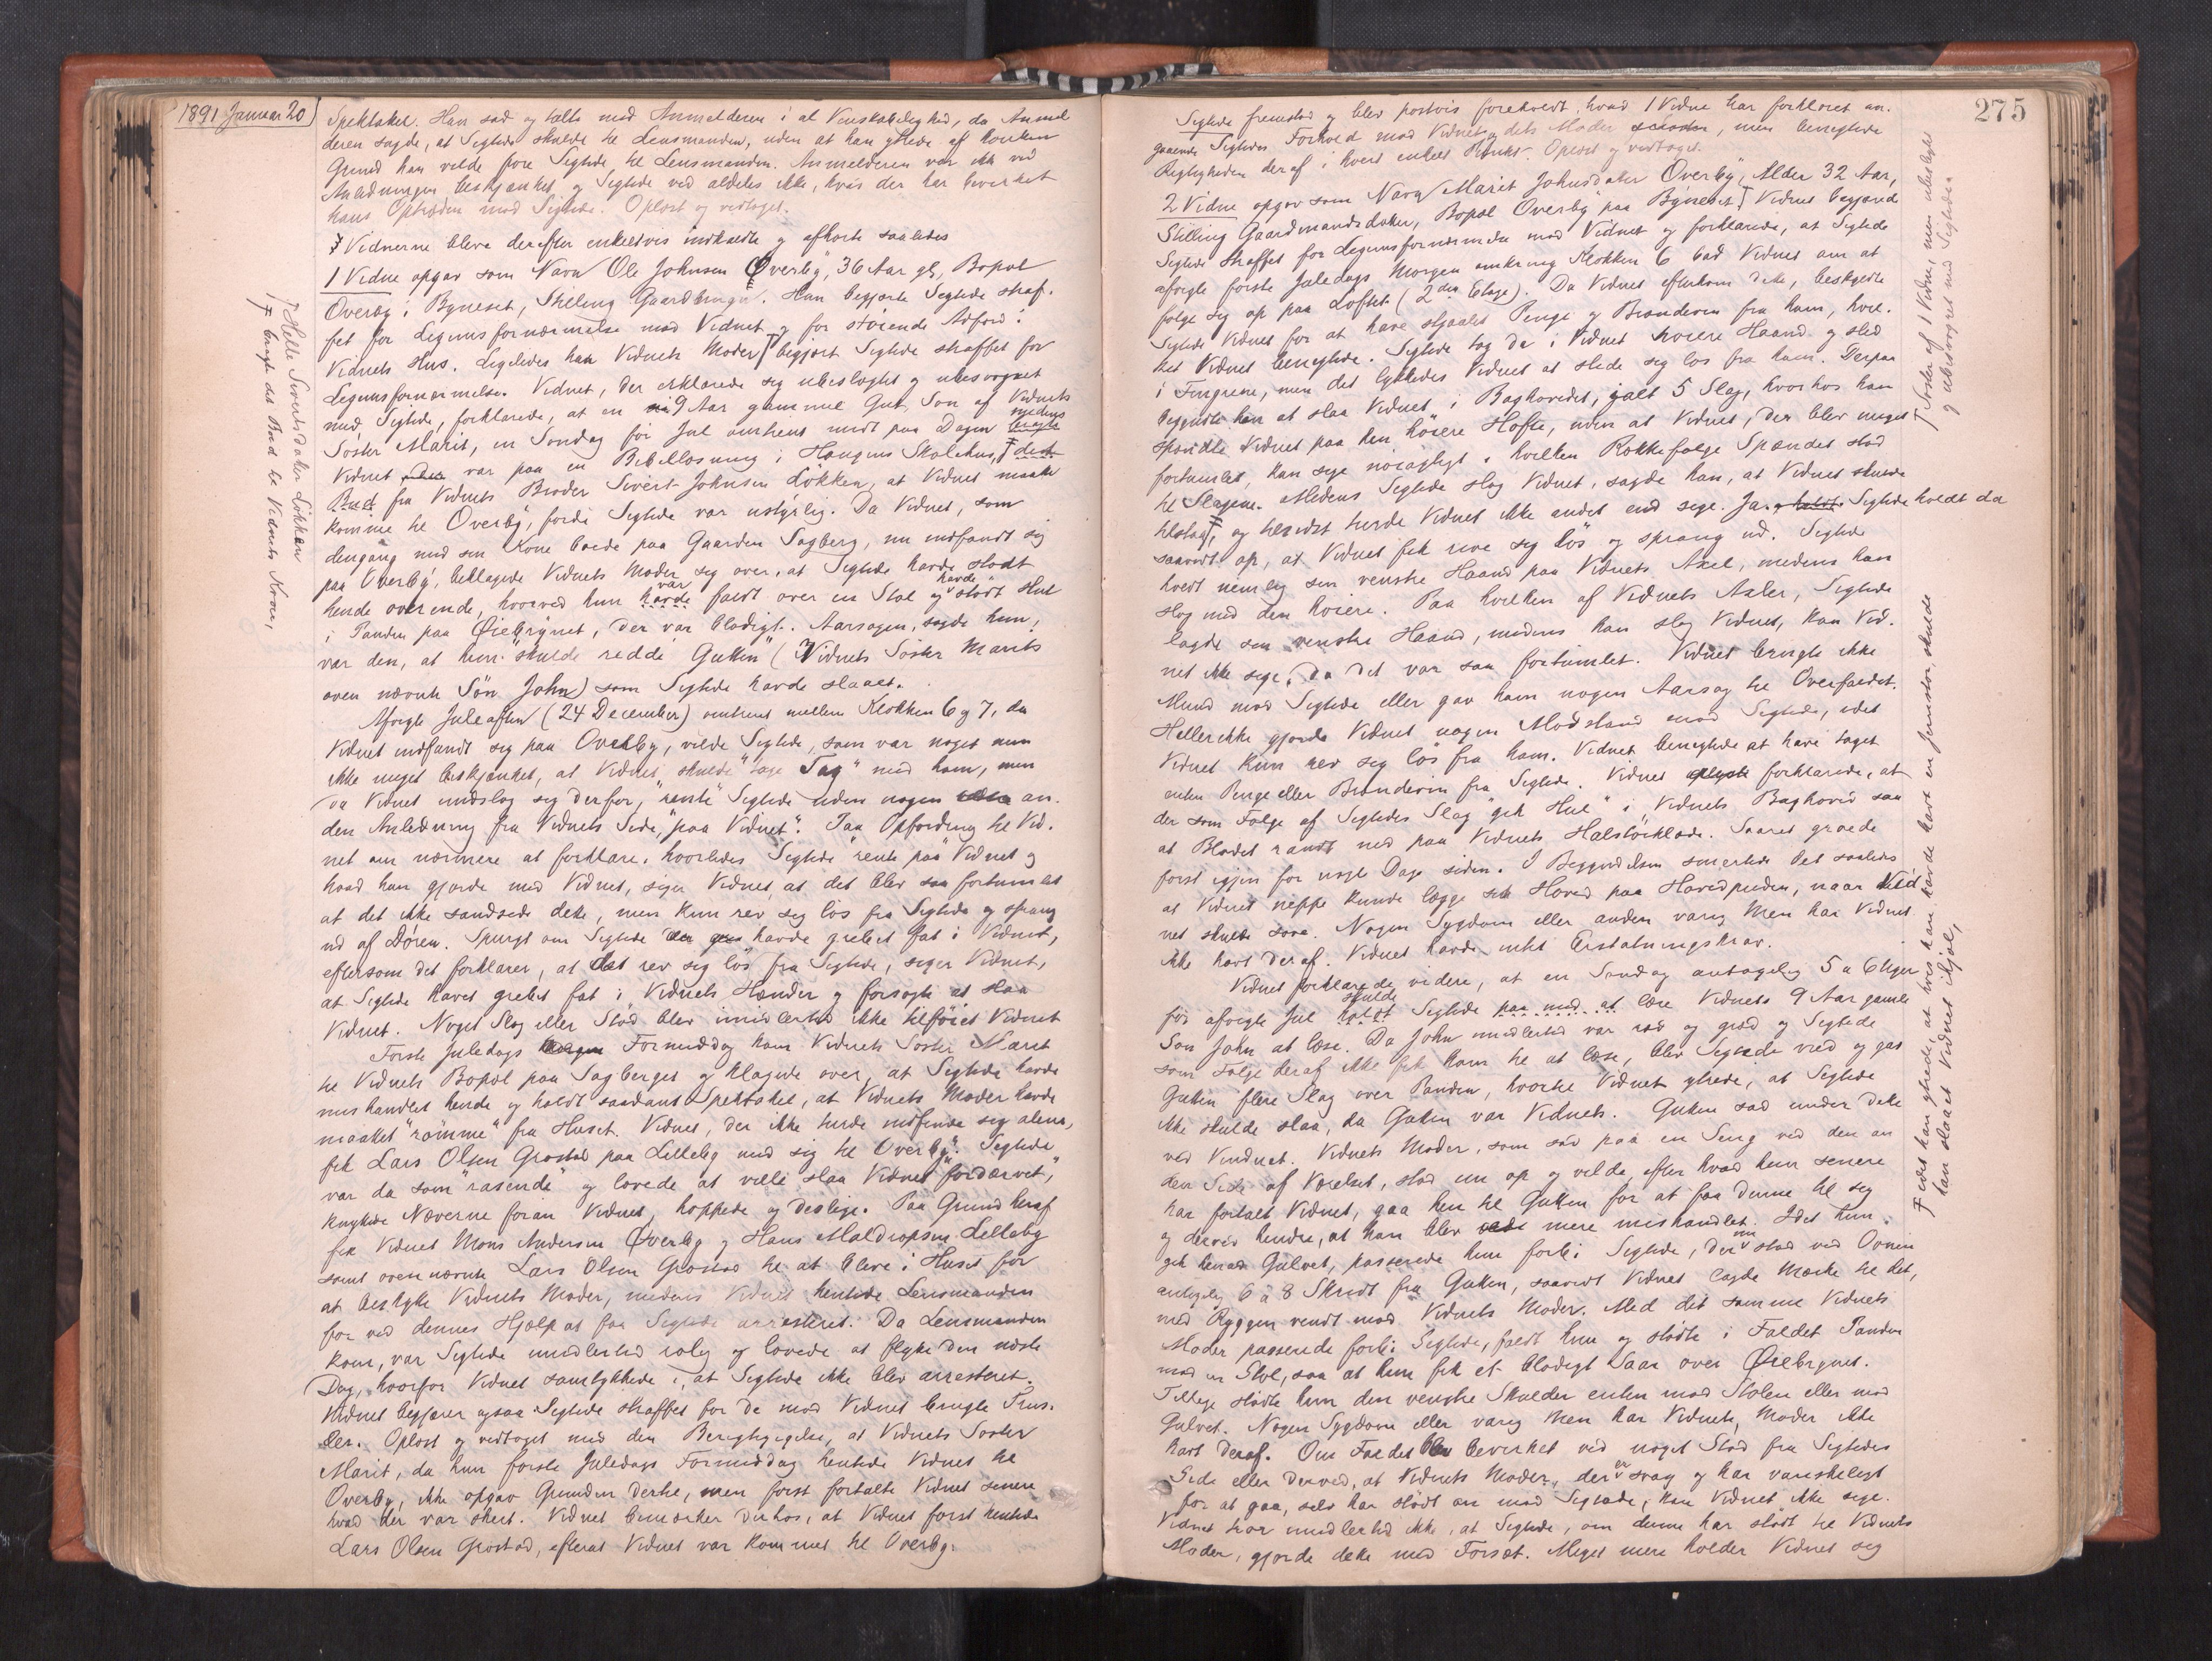 1891 Januar 20
Spektakel. Han sad og talte med Anmelderen i al Venskabelighed, da Anmel
deren sagde, at Sigtede skulde til Lensmanden, uden at han ytrede af hvilken
Grund han vilde føre Sigtede til Lensmanden. Anmelderen var ikke ved
Anledningen beskjænket, og Sigtede ved aldeles ikke, hvad der har bevirket
hans Optræden mod Sigtede. Oplæst og vedtaget.
Vidnerne bleve derefter enkeltvis indkaldte og afhørte saaledes
1 Vidne opgav som Navn Ole Johnsen Øverby, 36 Aar gl, Bopæl
Overby i Bynesset, Stilling Gaardbruger. Han begjærte Sigtede straf-
fet for Legemsfornærmelse mod Vidnet og for störende Adfærd i
Vidnets Hus. Ligeledes har Vidnets Moder begjært Sigtede straffet for
Legemsfornærmelse. Vidnet, der erklærede sig ubeslægtet og ubesvogret
med Sigtede, forklarede, at en 9 Aar gammel Gut, Søn af Vidnets
Søster Marit, en Søndag før Jul omtrent midt paa Dagen medens bragte
Vidnet var paa en Bibellæsning i Haugens Skolehus, det
Bud fra Vidnets Broder Sivert Johnsen Lökken, at Vidnet maatte
komme til Överby, fordi Sigtede var ustyrlig. Da Vidnet, som
dengang med sin Kone boede paa Gaarden Sagberg, nu indfandt sig
paa Överby, beklagede Vidnets Moder sig over, at Sigtede havde stødt
hende overende, hvorved hun var havde faldt over en Stol og havde stødt Hul
i Panden paa Øiebrynet, der var blodigt. Aarsagen, sagde hun,
var den, at hun "skulde redde Gutten" (Vidnets Søster Marits
oven nævnte Søn John) som Sigtede havde slaaet.
Afvigte Juleaften (24 December) omtrent mellem Klokken 6 og 7, da
Vidnet indfandt sig paa Overby, vilde Sigtede, som var noget men
ikke meget beskjænket, at Vidnet skulde "tage Tag" med ham, men
da Vidnet undslog sig derfor, "rente" Sigtede uden nogen an-
den Anledning fra Vidnets Side, "paa Vidnet". Paa Opfordring til Vid-
net om nærmere at forklare, hvorledes Sigtede "rente paa" Vidnet og
hvad han gjorde med Vidnet, siger Vidnet, at det blev saa fortumlet
at det ikke sandsede dette, men kun rev sig løs fra Sigtede og sprang
ud af Døren. Spurgt om Sigtede havde grebet fat i Vidnet,
eftersom det forklarer, at det rev sig løs fra Sigtede, siger Vidnet,
at Sigtede havet grebet fat i Vidnets Hænder og forsøgte at slaa
Vidnet. Noget Slag eller Stød blev imidlertid ikke tilføiet Vidnet
Første Juledags Formiddag kom Vidnets Søster Marit
til Vidnets Bopæl paa Sagberget og klagede over, at Sigtede havde
mishandlet hende og holdt saadant Spektakel, at Vidnets Moder havde
maattet "rømme" fra Huset. Vidnet, der ikke turde indfinde sig alene,
fik Lars Olsen Grostad paa Lilleby med sig til Overby. Sigtede
var da som "rasende" og lovede at ville slaa Vidnet "fordærvet",
knyttede Næverne foran Vidnet, hoppede og deslige. Paa Grund heraf
fik Vidnet Mons Andersen Øverby og Hans Lilleby
samt ovennævnte Lars Olsen Grostad til at blive i Huset for
at beskytte Vidnets Moder, medens Vidnet hentede Lensmanden
for ved dennes Hjælp at faa Sigtede arresteret. Da Lensmanden
kom, var Sigtede imidlertid rolig og lovede at flytte den næste
Dag, hvorfor Vidnet samtykkede i, at Sigtede ikke blev arresteret.
Vidnet begjærer ogsaa Sigtede straffet for de mod Vidnet brugte Trus-
ler. Oplæst og vedtaget med den Berigtigelse, at Vidnets Søster
Marit, da hun første Juledags Formiddag hentede Vidnet til
Overby, ikke opgav Grunden dertil, men først fortalte Vidnet senere
hvad der var skeet. Vidnet bemærker derhos, at Vidnet først hentede
Lars Olsen Grostad, efterat Vidnet var kommet til Overby.
Helle Sivertsdatter Lökken
bragte det Bud til Vidnets Kone,
275
Sigtede fremstod og blev postvis foreholdt, hvad 1 Vidne har forklaret an-
gaaende Sigtedes Forhold mod Vidnet og dets Moder, men benegtede
Rigtigheden deraf i hvert enkelt Punkt. Oplæst og vedtaget.
2 Vidne opgav som Navn Marit Johnsdatter Överby, Alder 32 Aar,
Stilling Gaardmandsdatter, Bopæl Overby paa Bynesset. Vidnet begjærede
Sigtede straffet for Legemsfornærmelse mod Vidnet og forklarede, at Sigtede
afvigte første Juledags Morgen omkring Klokken 6 bad Vidnet om at
følge sig op paa Loftet (2den Etage). Da Vidnet efterkom dette, beskyldte
Sigtede Vidnet for at have stjaalet Penge og Brændevin fra ham, hvil-
ket Vidnet benegtede. Sigtede tog da i Vidnet høiere Haand og sled
i Fingrene, men det lykkedes Vidnet at slide sig løs fra ham. Derpaa
begyndte han at slaa Vidnet i Baghovedet, ialt 5 Slag, hvorhos han
spændte Vidnet paa den høiere Hofte, uden at Vidnet, der blev meget
fortumlet, kan sige nøiagtigt i hvilken Rækkefølge Spændet stod
til Slagene. Medens Sigtede slog Vidnet, sagde han, at Vidnet skulde
tilstaa, og tilsidst turde Vidnet ikke andet end sige Ja. Sigtede holdt da
saavidt op, at Vidnet fik rive sig løs og sprang ud. Sigtede
holdt nemlig sin venstre Haand paa Vidnets Axel, medens han
slog med den høiere. Paa hvilken af Vidnets Axler, Sigtede
lagde sin venstre Haand, medens han slog Vidnet, kan Vid-
net ikke sige, da det var saa fortumlet. Vidnet brugte ikke
Mund mod Sigtede eller gav ham nogen Aarsag til Overfaldet.
Hellerikke gjorde Vidnet nogen Modstand mod Sigtede, idet
Vidnet kun rev sig løs fra ham. Vidnet benegtede at have taget
enten Penge eller Brændevin fra Sigtede. Vidnet forklarede, at
der som Følge af Sigtedes Slag "gik Hul" i Vidnets Baghoved saa
at Blodet randt ned paa Vidnets Halstørklæde. Saaret groede
først igjen for nogle Dage siden. I Begyndelsen smertede det saaledes
at Vidnet neppe kunde lægge sit Hoved paa Hovedpuden, naar Vid-
net skulde sove. Nogen Sygdom eller anden varig Men har Vidnet
ikke havt deraf. Vidnet havde intet Erstatningskrav.
Vidnet forklarede videre, at en Søndag antagelig 5 a 6 Uger
før afvigte Jul skulde holdt Sigtede paa med at lære Vidnets 9 Aar gamle
Søn John at læse. Da John imidlertid var ræd og græd og Sigtede
som Følge deraf ikke fik ham til at læse, blev Sigtede vred og gav
Gutten flere Slag over Panden, hvortil Vidnet ytrede, at Sigtede
ikke skulde slaa, da Gutten var Vidnets. Gutten sad under dette
ved Vinduet. Vidnets Moder, som sad paa en Seng ved den an
den Side af Værelset, stod nu op og vilde, efter hvad hun senere
har fortalt Vidnet, gaa hen til Gutten for at faa denne til sig
og derved hindre, at han blev mere mishandlet. Idet hun
gik henad Gulvet, passerede hun forbi Sigtede, der nu stod ved Ovnen
antagelig 6 a 8 Skridt fra Gutten, saavidt Vidnet lagde Mærke til det,
med Ryggen vendt mod Vidnets Moder. Med det samme Vidnets
Moder passerede forbi Sigtede, faldt hun og stødte i Faldet Panden
mod en Stol, saa at hun fik et blodigt Saar over Øiebrynet.
Tillige stødte hun den venstre Skulder enten mod Stolen eller mod
Gulvet. Nogen Sygdom eller varig Men har Vidnets Moder ikke
havt deraf. Om Faldet blev bevirket ved noget Stød fra Sigtedes
Side eller derved, at Vidnets Moder, der er svag og har vanskeligt
for at gaa, selv har stødt an mod Sigtede, kan Vidnet ikke sige.
Vidnet tror imidlertid ikke, at Sigtede, om denne har stødt til Vidnets
Moder, gjorde dette med Forsæt. Meget mere holder Vidnet sig
Søster af 1 Vidne, men ubeslægtet
og ubesvogret med Sigtede
idet han ytrede, at hvis han havde havt en Jernstør, skulde
han slaaet Vidnet ihjel,